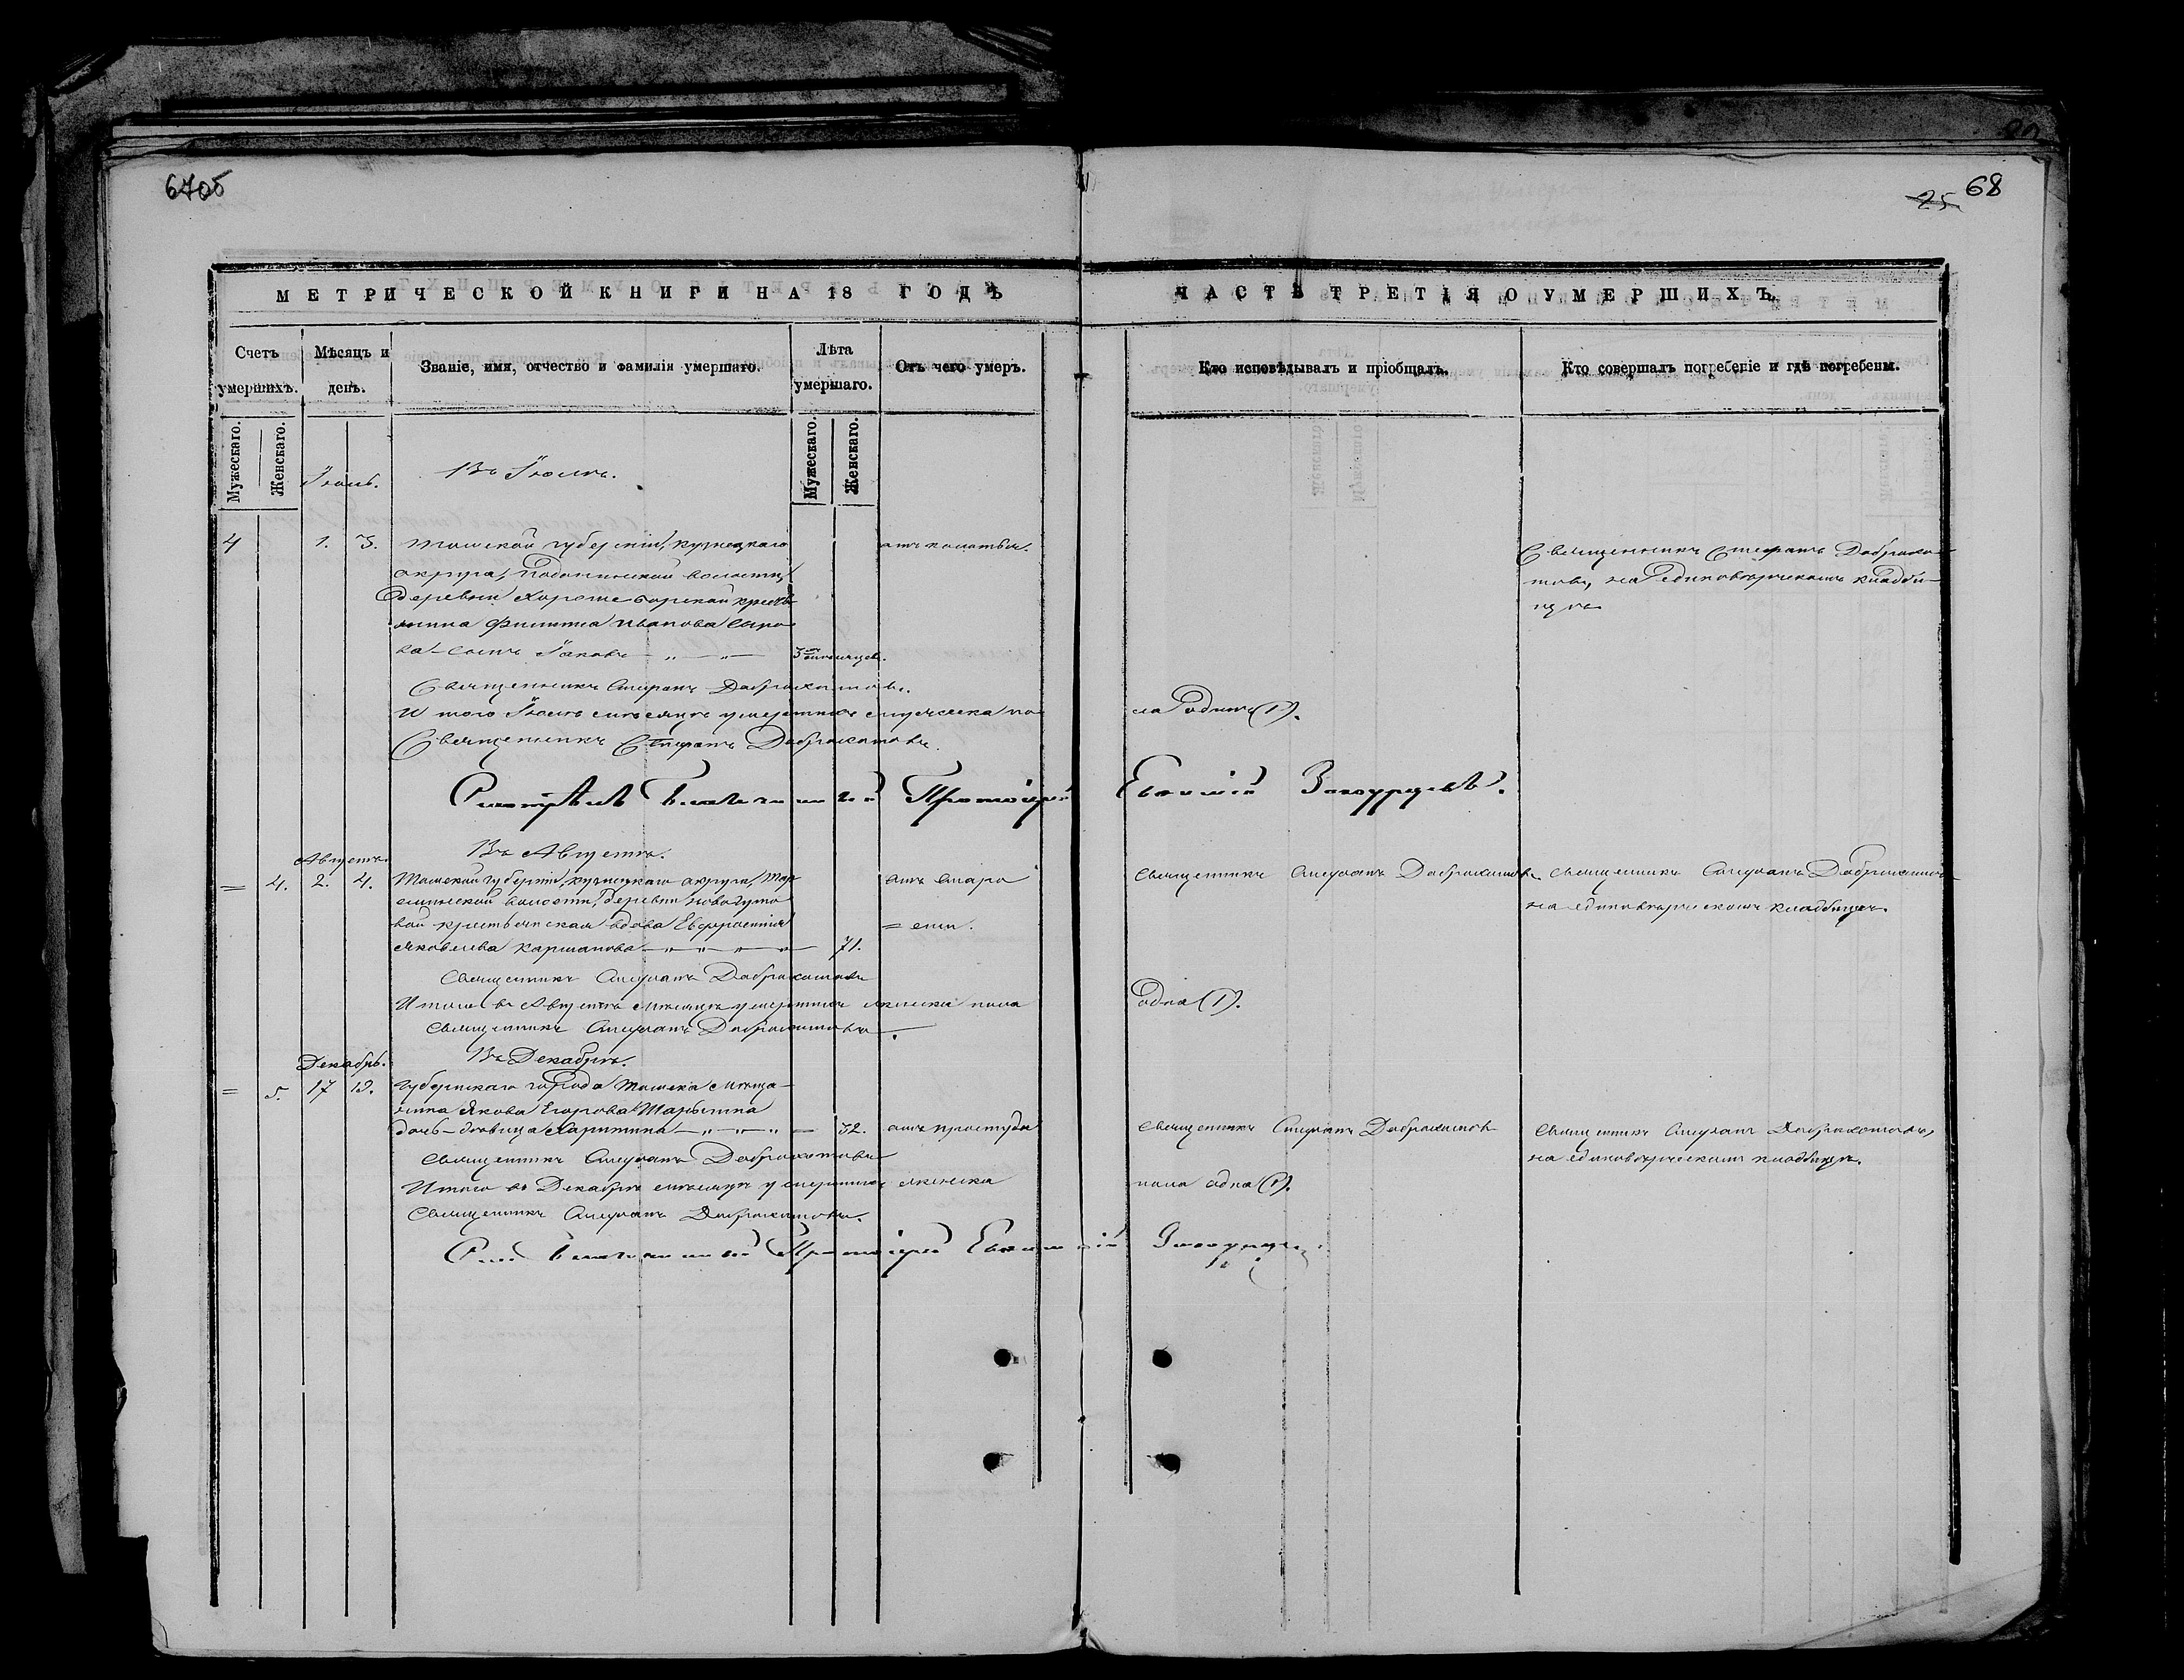 6705
25 68
МЕТРИЧЕСКОЙ КНИГИ НА 18 ГОДЪ
ЧАСТЬ ТРЕТІЯ О УМЕРШИХЪ.
Счетъ умершихъ.
Мѣсяцъ и день.
Званіе, имя, отчество и фамилія умершаго.
Лѣта умершаго.
Отъ чего умеръ.
Кто исповѣдывалъ и пріобщалъ.
Кто совершалъ погребеніе и гдѣ погребены.
Мужескаго.
Женскаго.
Мужескаго.
Женскаго.
Іюль.
Въ Іюлѣ.
4 1. 3. Томской губерніи, Кузнецкаго
округа, волости,
деревни
Филиппа Иванова
сынъ Іаковъ 3 мѣсяцев.
Священникъ Стефанъ Доброхото-
товъ, на Единовѣрческомъ кладби-
щѣ.
Священникъ Стефанъ Доброхотовъ.
Итого Іюлѣ мѣсяцѣ умершихъ мужеска по-
ла одинъ (1).
Священникъ Стефанъ Доброхотовъ.
Благочинный Протоіерей Евѳимій
Августъ.
Въ Августѣ.
= 4. 2. 4. Томской губерніи, Кузнецкаго округа,
волости, деревни
крестьянская вдова Евфросинія
Яковлева 71.
отъ старо
= сти.
Священникъ Стефанъ Доброхотовъ
Священникъ Стефанъ Доброхотовъ
на единовѣрческомъ кладбищѣ.
Священникъ Стефанъ Доброхотовъ
Итого въ Августѣ мѣсяцѣ умершихъ женска пола
одна (1).
Священникъ Стефанъ Доброхотовъ
Декабрь.
Въ Декабрѣ.
= 5. 17 19. Губернскаго города Томска мѣща-
нина Якова Егорова
дочь-дѣвица Харитина 32. отъ простуды
Священникъ Стефанъ Доброхотовъ
Священникъ Стефанъ Доброхотовъ,
на единовѣрческомъ кладбищѣ.
Священникъ Стефанъ Доброхотовъ
Итого въ Декабрѣ мѣсяцѣ умершихъ женска
пола одна (1).
Священникъ Стефанъ Доброхотовъ.
Благочинный Протоіерей Евѳимій